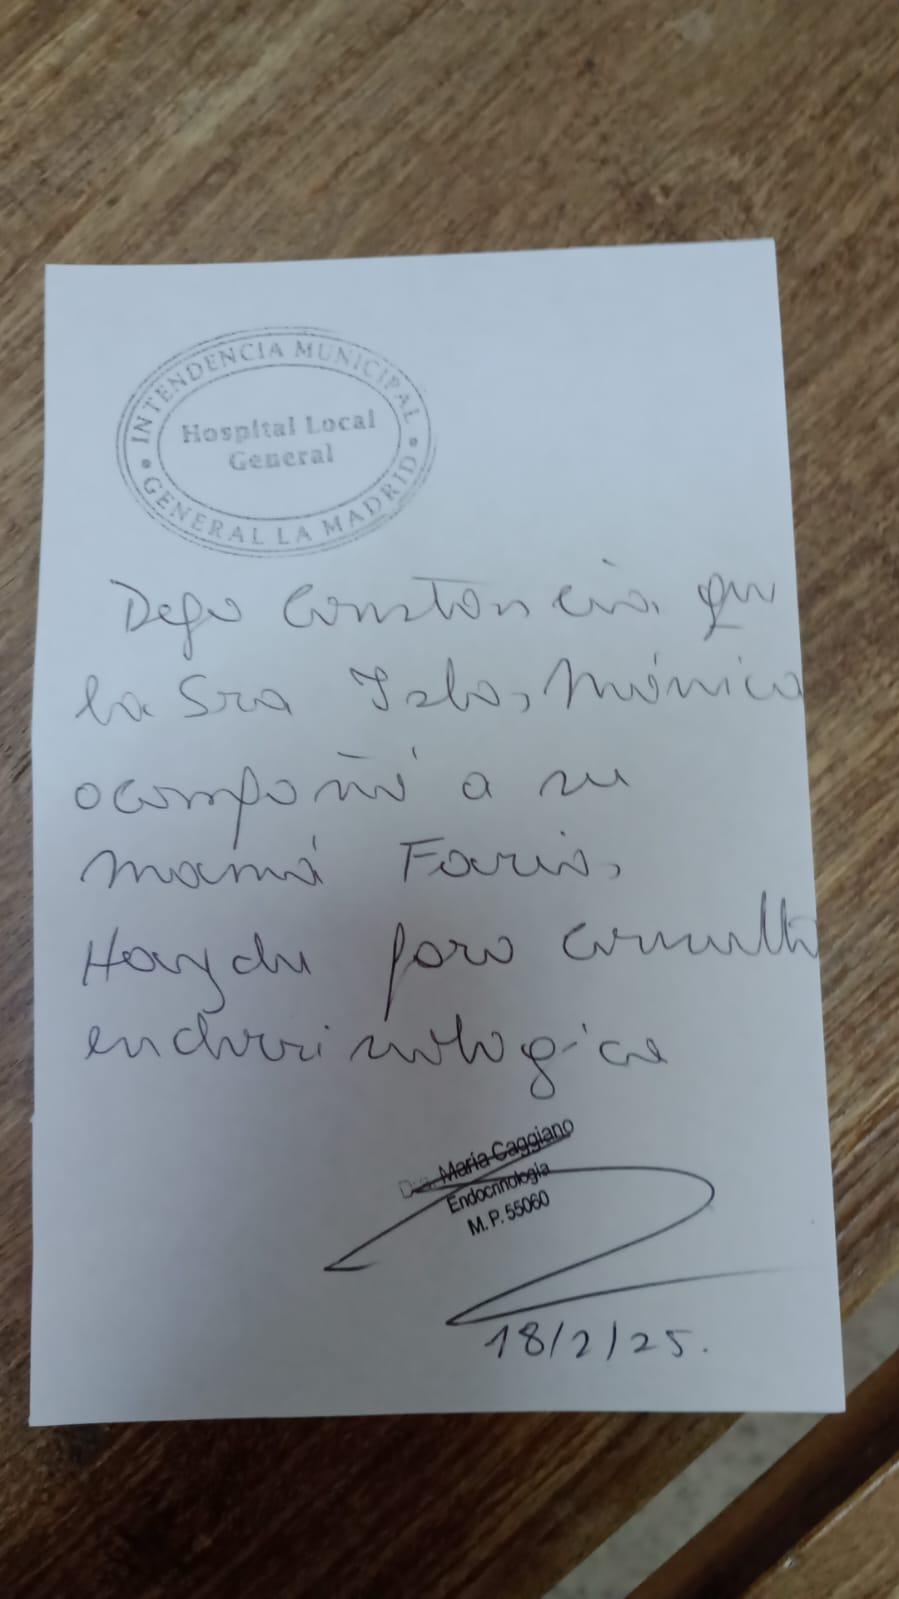 INTENDENCIA MUNICIPAL
Hospital Local
General
GENERAL LA MADRID
Dejo constancia que
la Sra Isla, Mónica
acompañó a su
mamá Faris,
Haydee para consulta
endocrinológica
Dra. María Caggiano
Endocrinología
M. P. 55060
18/2/25.